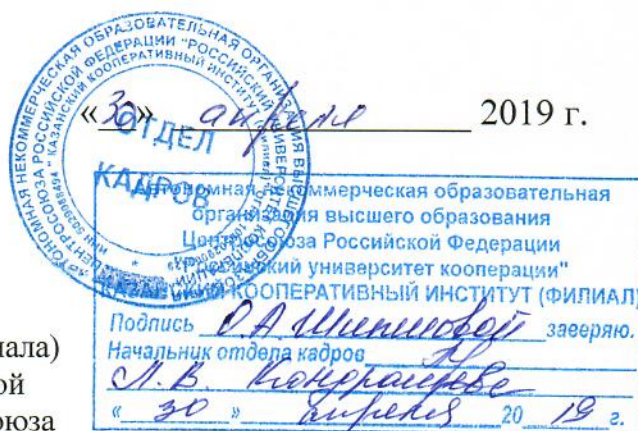 АВТОНОМНАЯ НЕКОММЕРЧЕСКАЯ ОБРАЗОВАТЕЛЬНАЯ ОРГАНИЗАЦИЯ ВЫСШЕГО
ЦЕНТРОСОЮЗА РОССИЙСКОЙ ФЕДЕРАЦИИ "РОССИЙСКИЙ УНИВЕРСИТЕТ КООПЕРАЦИИ"
КАЗАНСКИЙ КООПЕРАТИВНЫЙ ИНСТИТУТ (ФИЛИАЛ)
ОТДЕЛ
КАДРОВ
«30» апреля 2019 г.
Автономная некоммерческая образовательная
организация высшего образования
Центросоюза Российской Федерации
"Российский университет кооперации"
КАЗАНСКИЙ КООПЕРАТИВНЫЙ ИНСТИТУТ (ФИЛИАЛ)
Подпись О.А. заверяю.
Начальник отдела кадров
Л.В.
« 30 » апреля 20 19 г.
иала)
ой
оюза